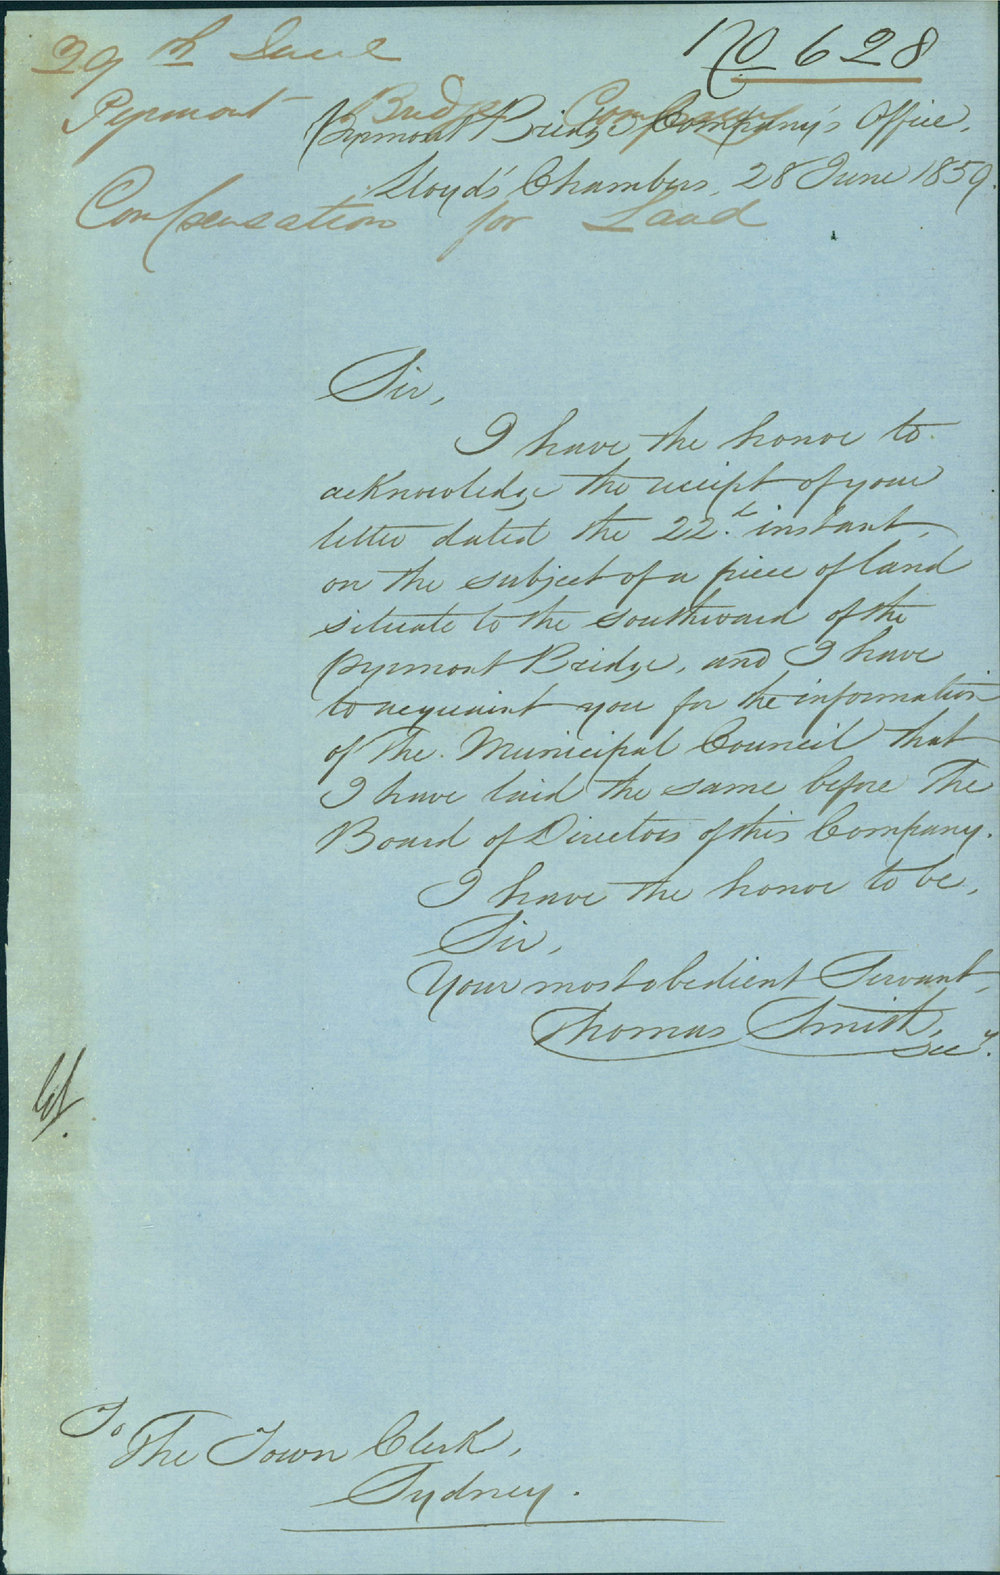 29th June
No 628
Pyrmont Bridge Company
Pyrmont Bridge Company's Office,
Lloyd's Chambers, 28 June 1859.
Compensation for Land
Sir,
I have the honor to
acknowledge the receipt of your
letter dated the 22d. instant,
on the subject of a piece of land
situate to the southward of the
Pyrmont Bridge, and I have
to acquaint you for the information
of the Municipal Council that
I have laid the same before The
Board of Directors of this Company.
I have the honor to be,
Sir,
Your most obedient Servant,
Thomas Smith,
Secy.
To
The Town Clerk,
Sydney.